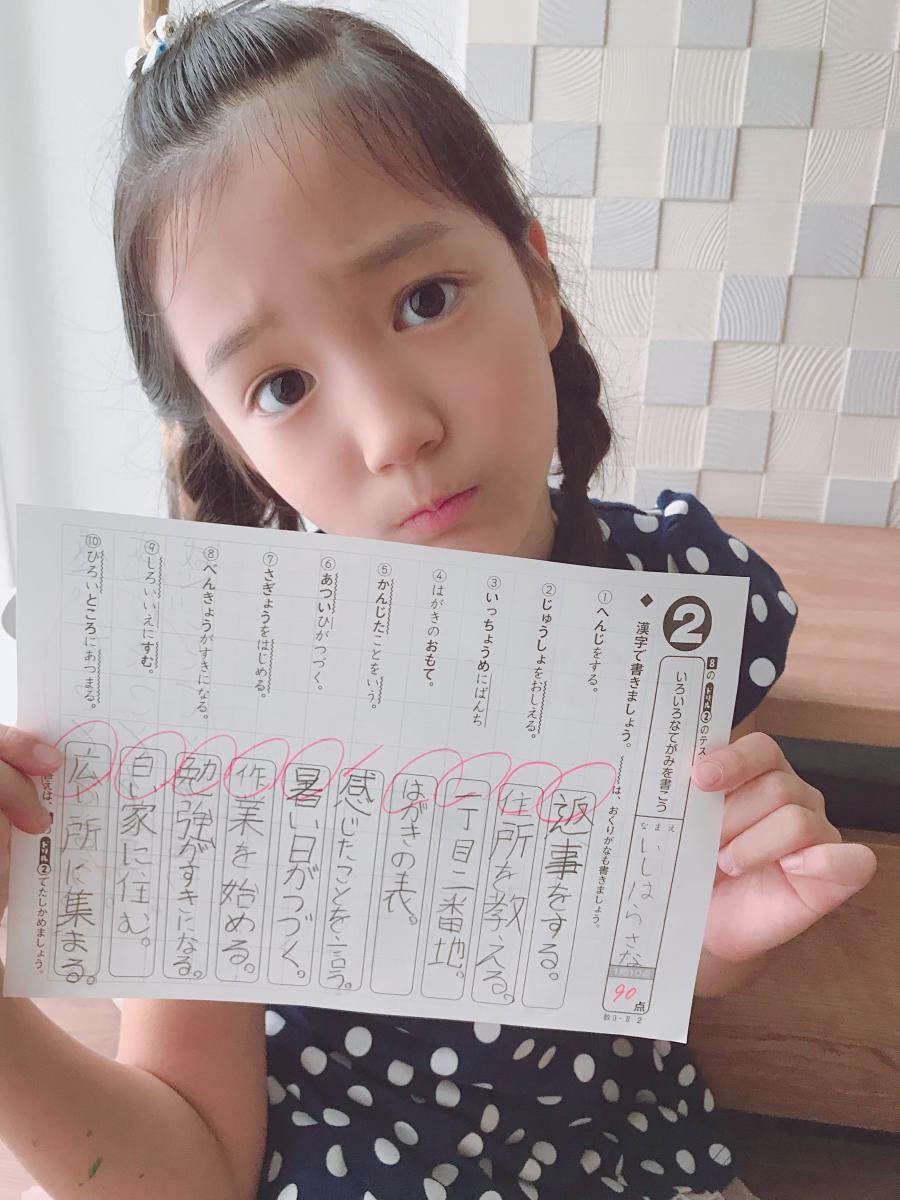 2
8のドリル②のテスト
いろいろなてがみを書こう
なまえ
いしはらさな
1問10点
90点
教3・8 2
◆漢字で書きましょう。
は、おくりがなも書きましょう。
①へんじをする。
②じゅうしょをおしえる。
③いっちょうめにばんち
④はがきのおもて。
⑤かんじたことをいう。
⑥あついひがつづく。
⑦さぎょうをはじめる。
⑧べんきょうがすきになる。
⑨しろいいえにすむ。
⑩ひろいところにあつまる。
返事をする。
住所を教える。
一丁目二番地。
はがきの表。
感じたことを言う。
暑い日がつづく。
作業を始める。
勉強がすきになる。
白い家に住む。
広い所に集まる。
答えは、
のドリル②でたしかめましょう。